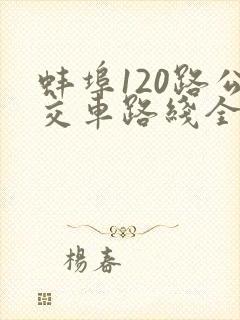 蚌埠120路公
交車路綫全
楊春